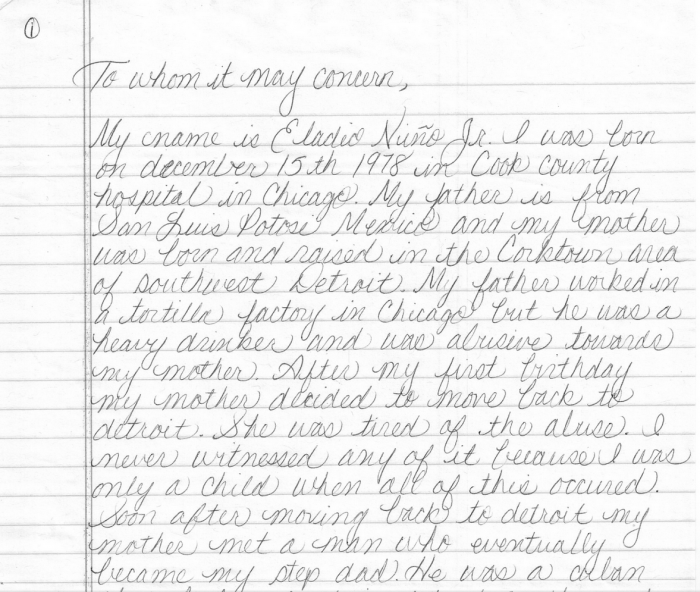 ①
To whom it may concern,
My name is Eladio Nuño Jr. I was born
on december 15th 1978 in Cook county
hospital in Chicago. My father is from
San Luis Potosi Mexico and my mother
was born and raised in the Corktown area
of southwest Detroit. My father worked in
a tortilla factory in Chicago but he was a
heavy drinker and was abusive towards
my mother. After my first birthday
my mother decided to move back to
detroit. She was tired of the abuse. I
never witnessed any of it because I was
only a child when all of this occured.
Soon after moving back to detroit my
mother met a man who eventually
became my step dad. He was a cuban